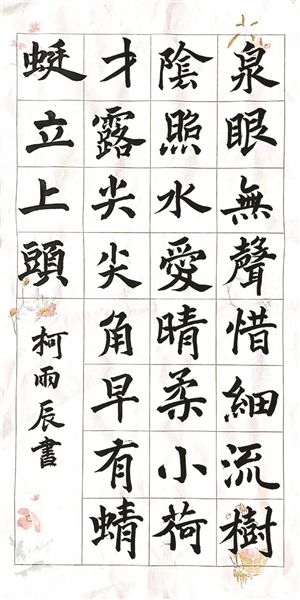 泉眼無聲惜細流樹
陰照水愛晴柔小荷
才露尖尖角早有蜻
蜓立上頭
柯雨辰書